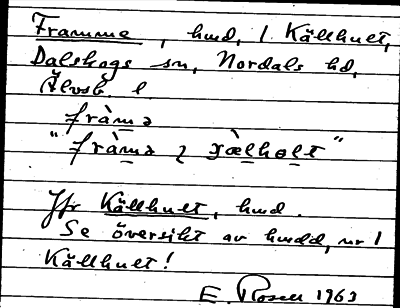 Framme, hmd, 1 Källhult,
Dalskogs sn, Nordals hd,
Älvsb. l.
fràmə
"fràmə 2 xæ̀lholt"
Jfr Källhult, hmd.
Se översikt av hmdd, nr 1
Källhult!
E. Rosell 1963